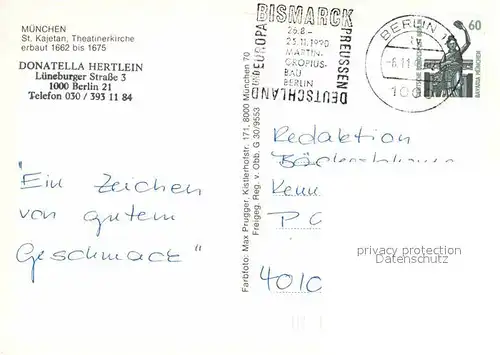 MÜNCHEN
St. Kajetan, Theatinerkirche
erbaut 1662 bis 1675
DONATELLA HERTLEIN
Lüneburger Straße 3
1000 Berlin 21
Telefon 030 / 393 11 84
"Ein Zeichen
von gutem
Geschmack"
Farbfoto: Max Prugger, Kistlerhofstr. 171, 8000 München 70
Freigeg. Reg. v. Obb. G 30/9553
BISMARCK
PREUSSEN
DEUTSCHLAND
UND EUROPA
26.8.-
25.11.1990
MARTIN-
GROPIUS-
BAU
BERLIN
BERLIN
60
BAVARIA MÜNCHEN
Redaktion
Kenn
P
4010
privacy protection
Datenschutz